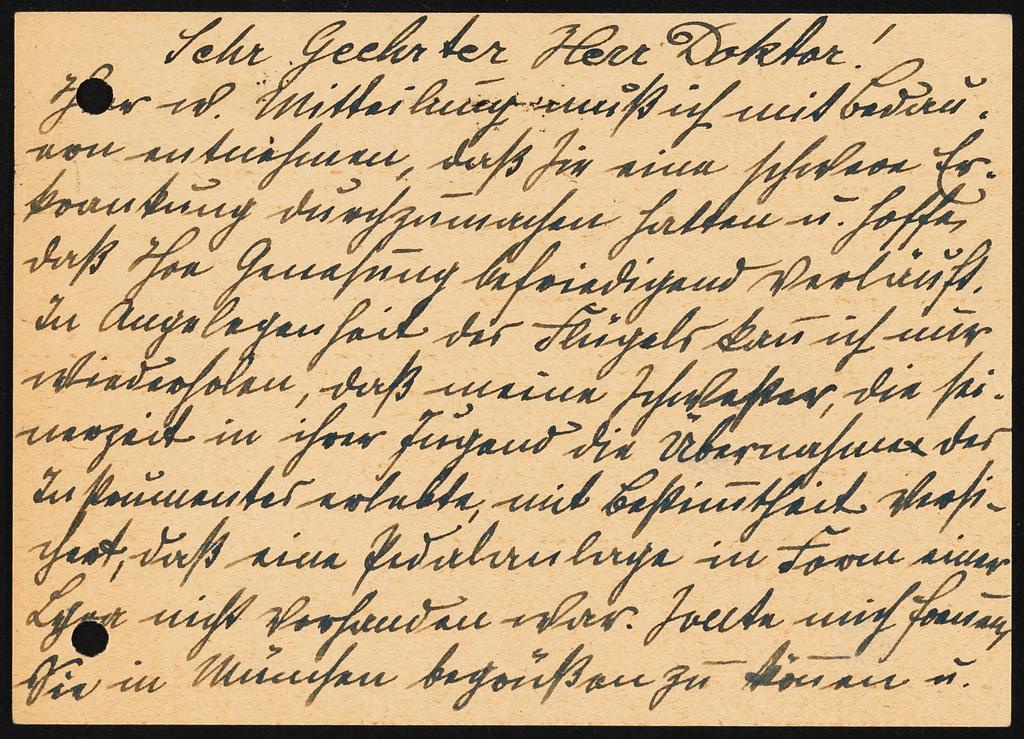 Sehr Geehrter Herr Doktor!
Ihrer w. Mitteilung muß ich mit Bedau-
ern entnehmen, daß Sie eine schwere Er-
krankung durchzumachen hatten u. hoffe,
daß Ihre Genesung befriedigend verläuft.
In Angelegenheit des Flügels kan̅ ich nur
wiederholen, daß meine Schwester, die sei-
nerzeit in ihrer Jugend die Übernahme des
Instrumentes erlebte, mit Bestim̅theit versi-
chert, daß eine Pedalanlage in Form einer
Lyra nicht vorhanden war. Sollte mich freuen,
Sie in München begrüßen zu kön̅en u.